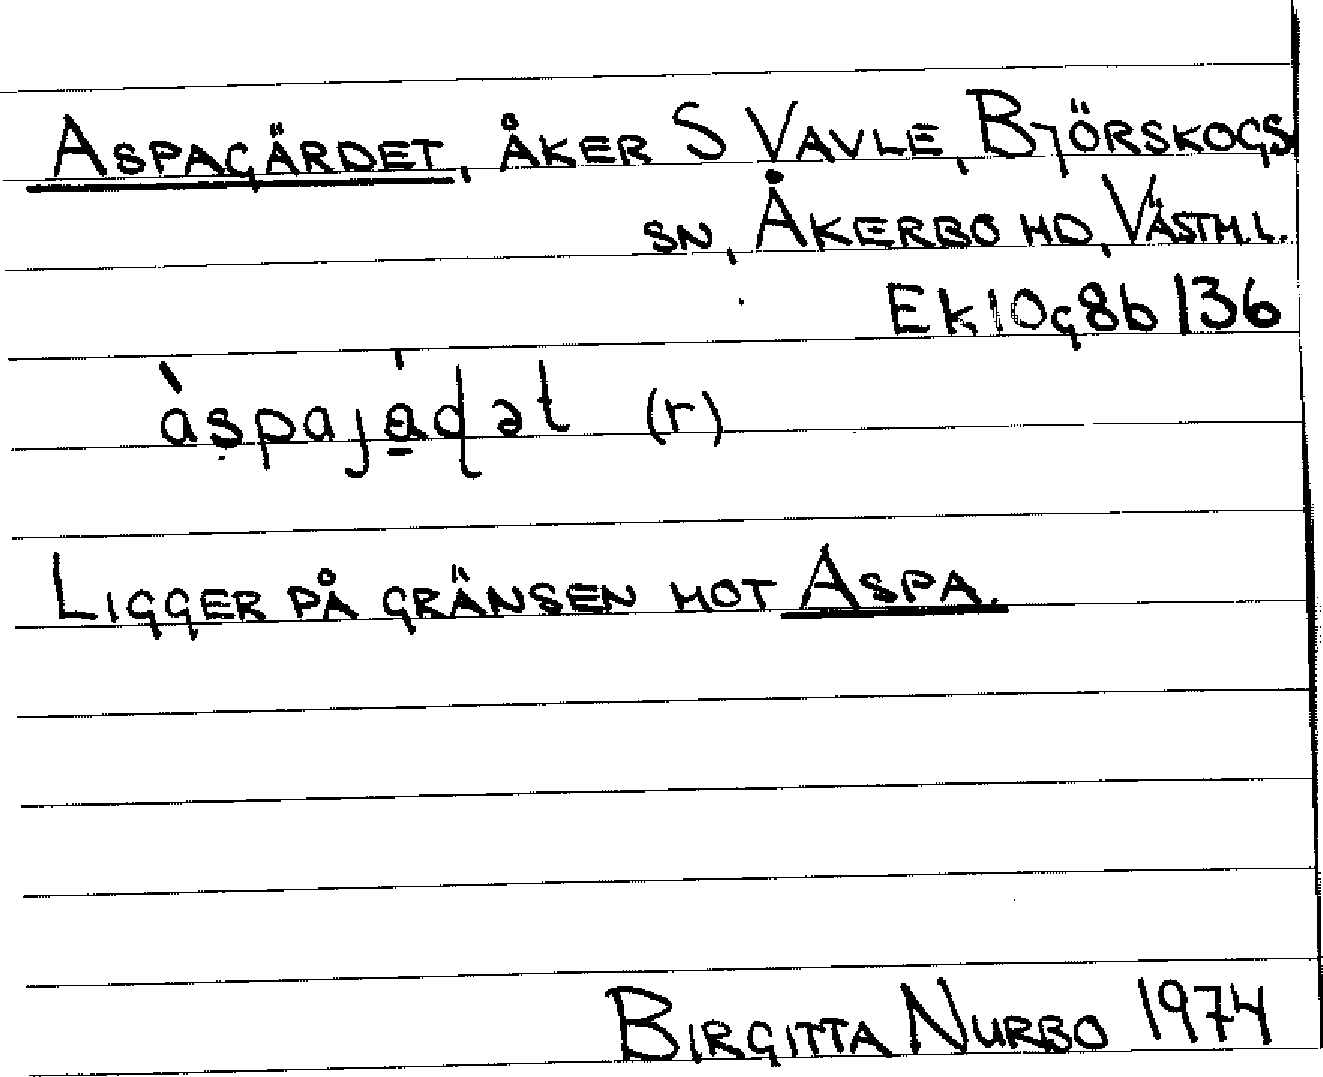 ASPAGÄRDET, ÅKER S VAVLE, BJÖRSKOGS
SN, ÅKERBO HD, VÄSTM.L.
Ek10g8b 136
àspaja̲ɖət (r)
LIGGER PÅ GRÄNSEN MOT ASPA.
BIRGITTA NURBO 1974